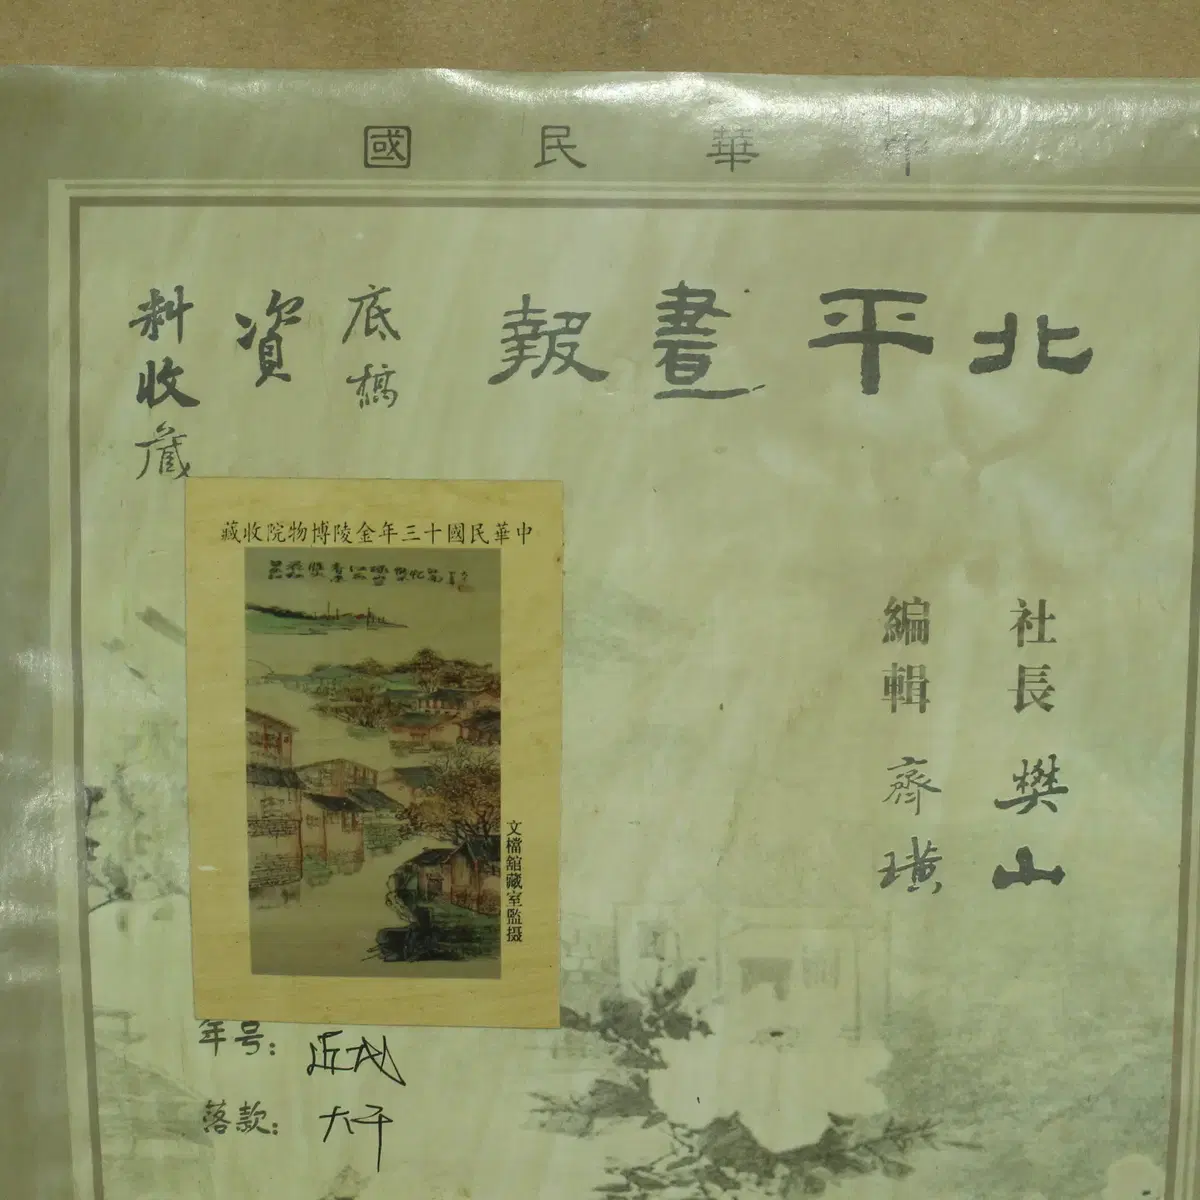 中華民國
北平畫報
底稿
資
料收藏
社長 樊山
編輯 齊璜
中華民國十三年金陵博物院收藏
文檔舘藏室監摄
年号: 近代
落款: 大千